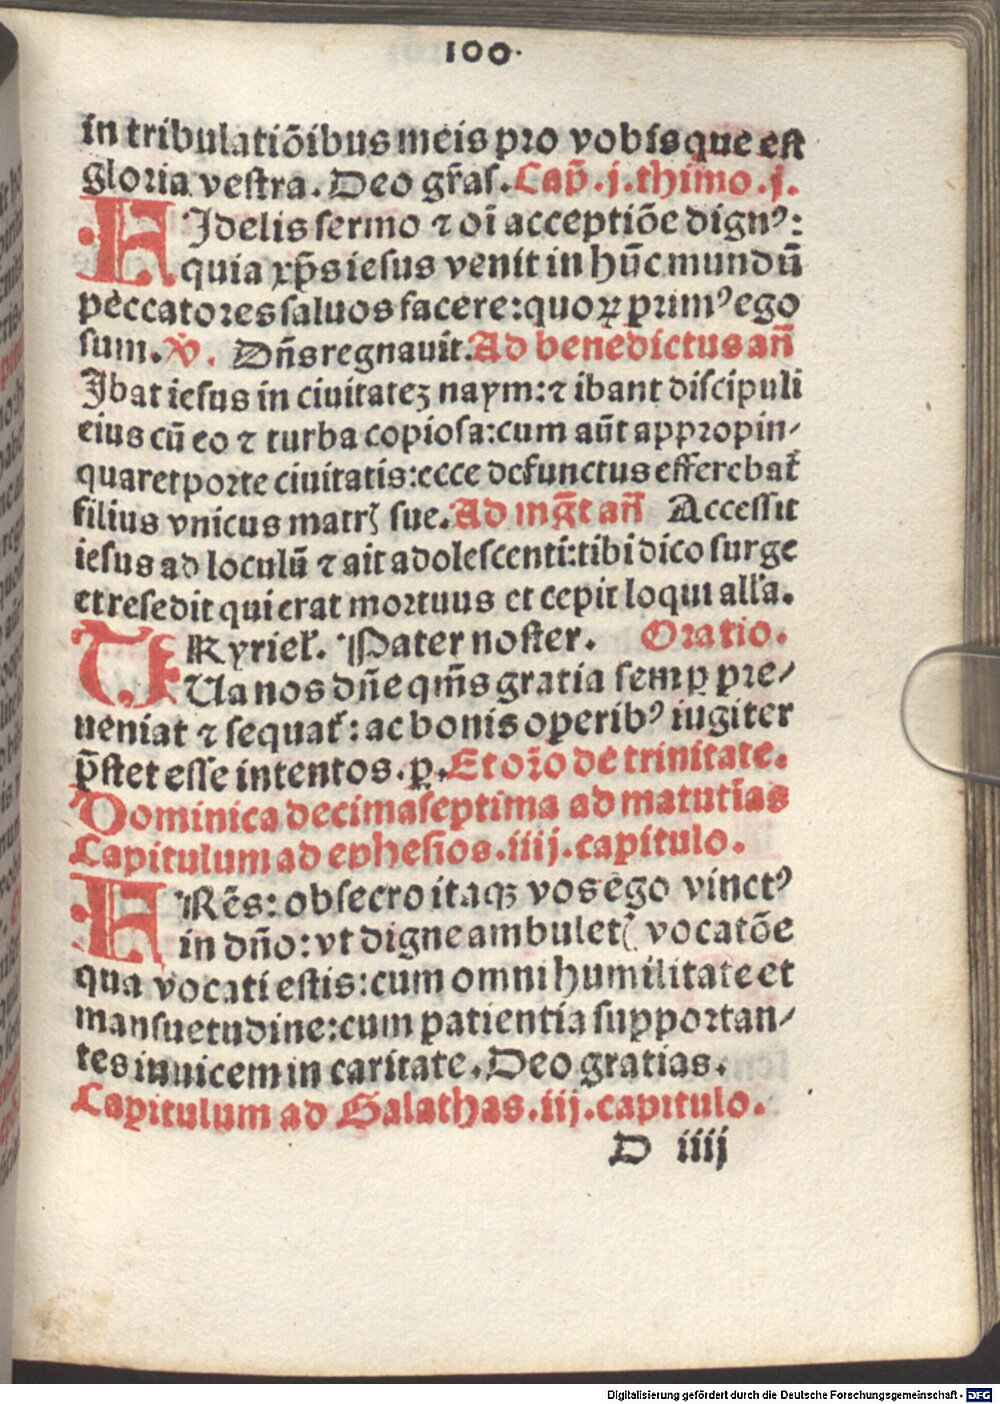 100.
in tribulatiõibus meis pro vobis que est
gloria vestra. Deo gr̃as. Cap̃. j. thimo. j.
FJdelis sermo ⁊ oĩ acceptiõe dignꝰ:
quia xp̃s iesus venit in hũc mundũ
peccatores saluos facere: quoꝝ primꝰ ego
sum. ℣. Dñs regnauit. Ad benedictus añ
Jbat iesus in ciuitateʒ naym: ⁊ ibant discipuli
eius cũ eo ⁊ turba copiosa: cum aũt appropin-
quaret porte ciuitatis: ecce defunctus efferebat̃
filius vnicus matrꝭ sue. Ad mg̃t añ Accessit
iesus ad loculũ ⁊ ait adolescenti: tibi dico surge
et resedit qui erat mortuus et cepit loqui all'a.
Kyriel̃. Pater noster. Oratio.
TUa nos dñe qm̃s gratia semꝑ pre-
ueniat ⁊ sequat̃: ac bonis operibꝰ iugiter
p̃stet esse intentos. ꝑ. Et or̃o de trinitate.
Dominica decimaseptima ad matutĩas
Capitulum ad ephesios. iiij. capitulo.
FRẽs: obsecro itaqꝫ vos ego vinctꝰ
in dño: vt digne ambuletꝭ vocatõe
qua vocati estis: cum omni humilitate et
mansuetudine: cum patientia supportan-
tes inuicem in caritate. Deo gratias.
Capitulum ad Galathas. iij. capitulo.
D iiij
Digitalisierung gefördert durch die Deutsche Forschungsgemeinschaft - DFG